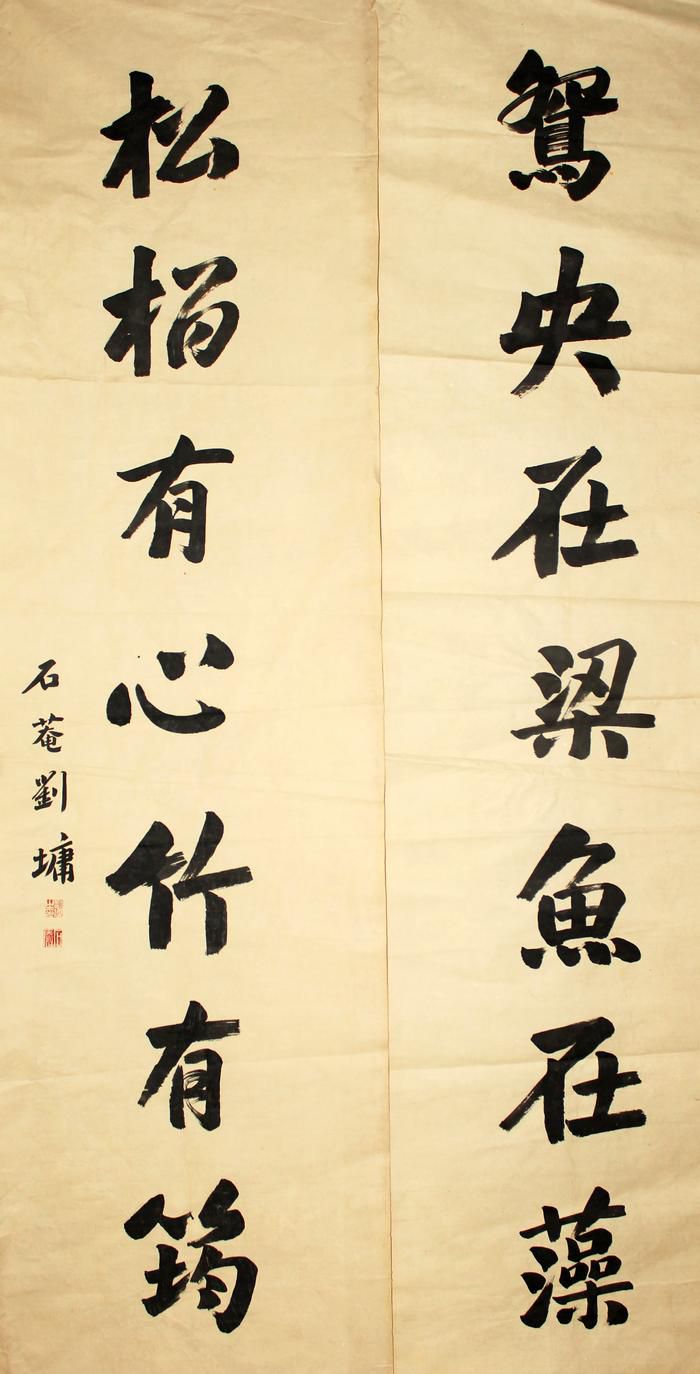 鴛央在梁魚在藻
松柏有心竹有筠
石菴劉墉